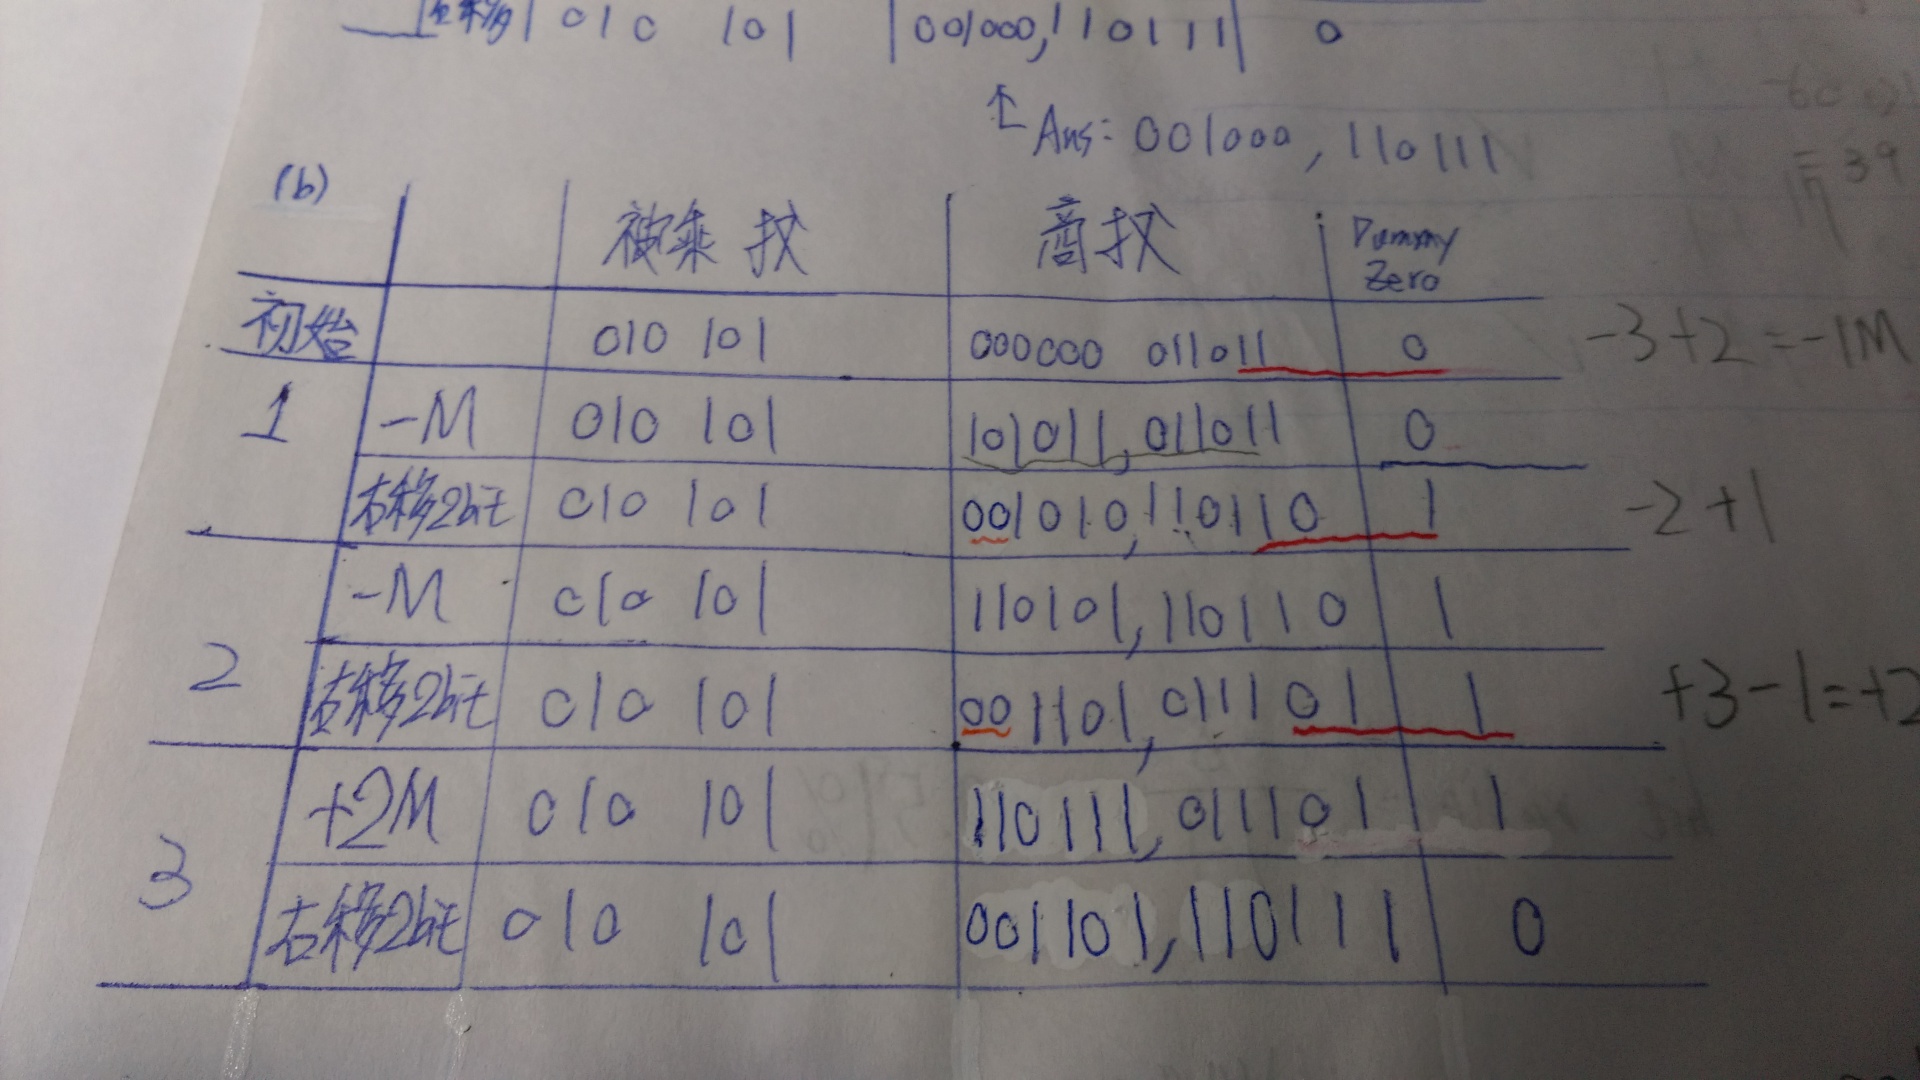 010 101 001000,110111 0
Ans: 001000, 110111
(b)
被乘 扙 商扙 Dummy Zero
初始 010 101 000000 011011 0 -3+2=-1M
1 -M 010 101 101011,011011 0
右移2bit 010 101 001010,110110 1 -2+1
-M 010 101 110101,110110 1
2 右移2bit 010 101 001101,011101 1 +3-1=+2
+2M 010 101 110111,011101 1
3 右移2bit 010 101 001101,110111 0